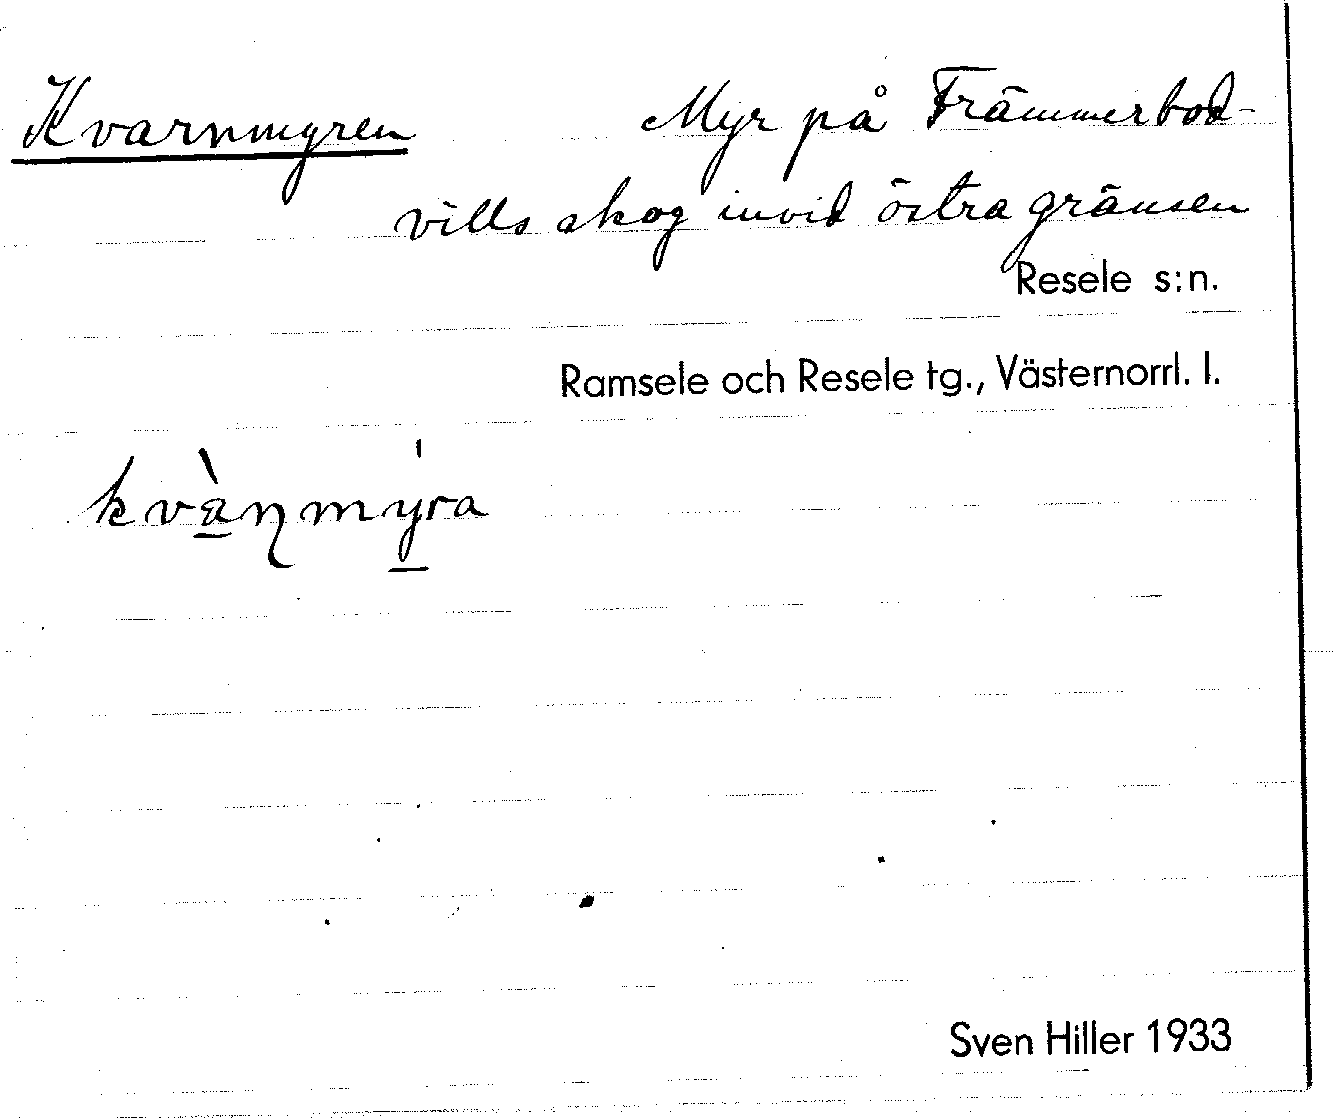 Kvarnmyren Myr på Främmerbod-
vills skog invid östra gränsen
Resele s:n.
Ramsele och Resele tg., Västernorrl. l.
kvà̱ɳmy̱̍ra
Sven Hiller 1933